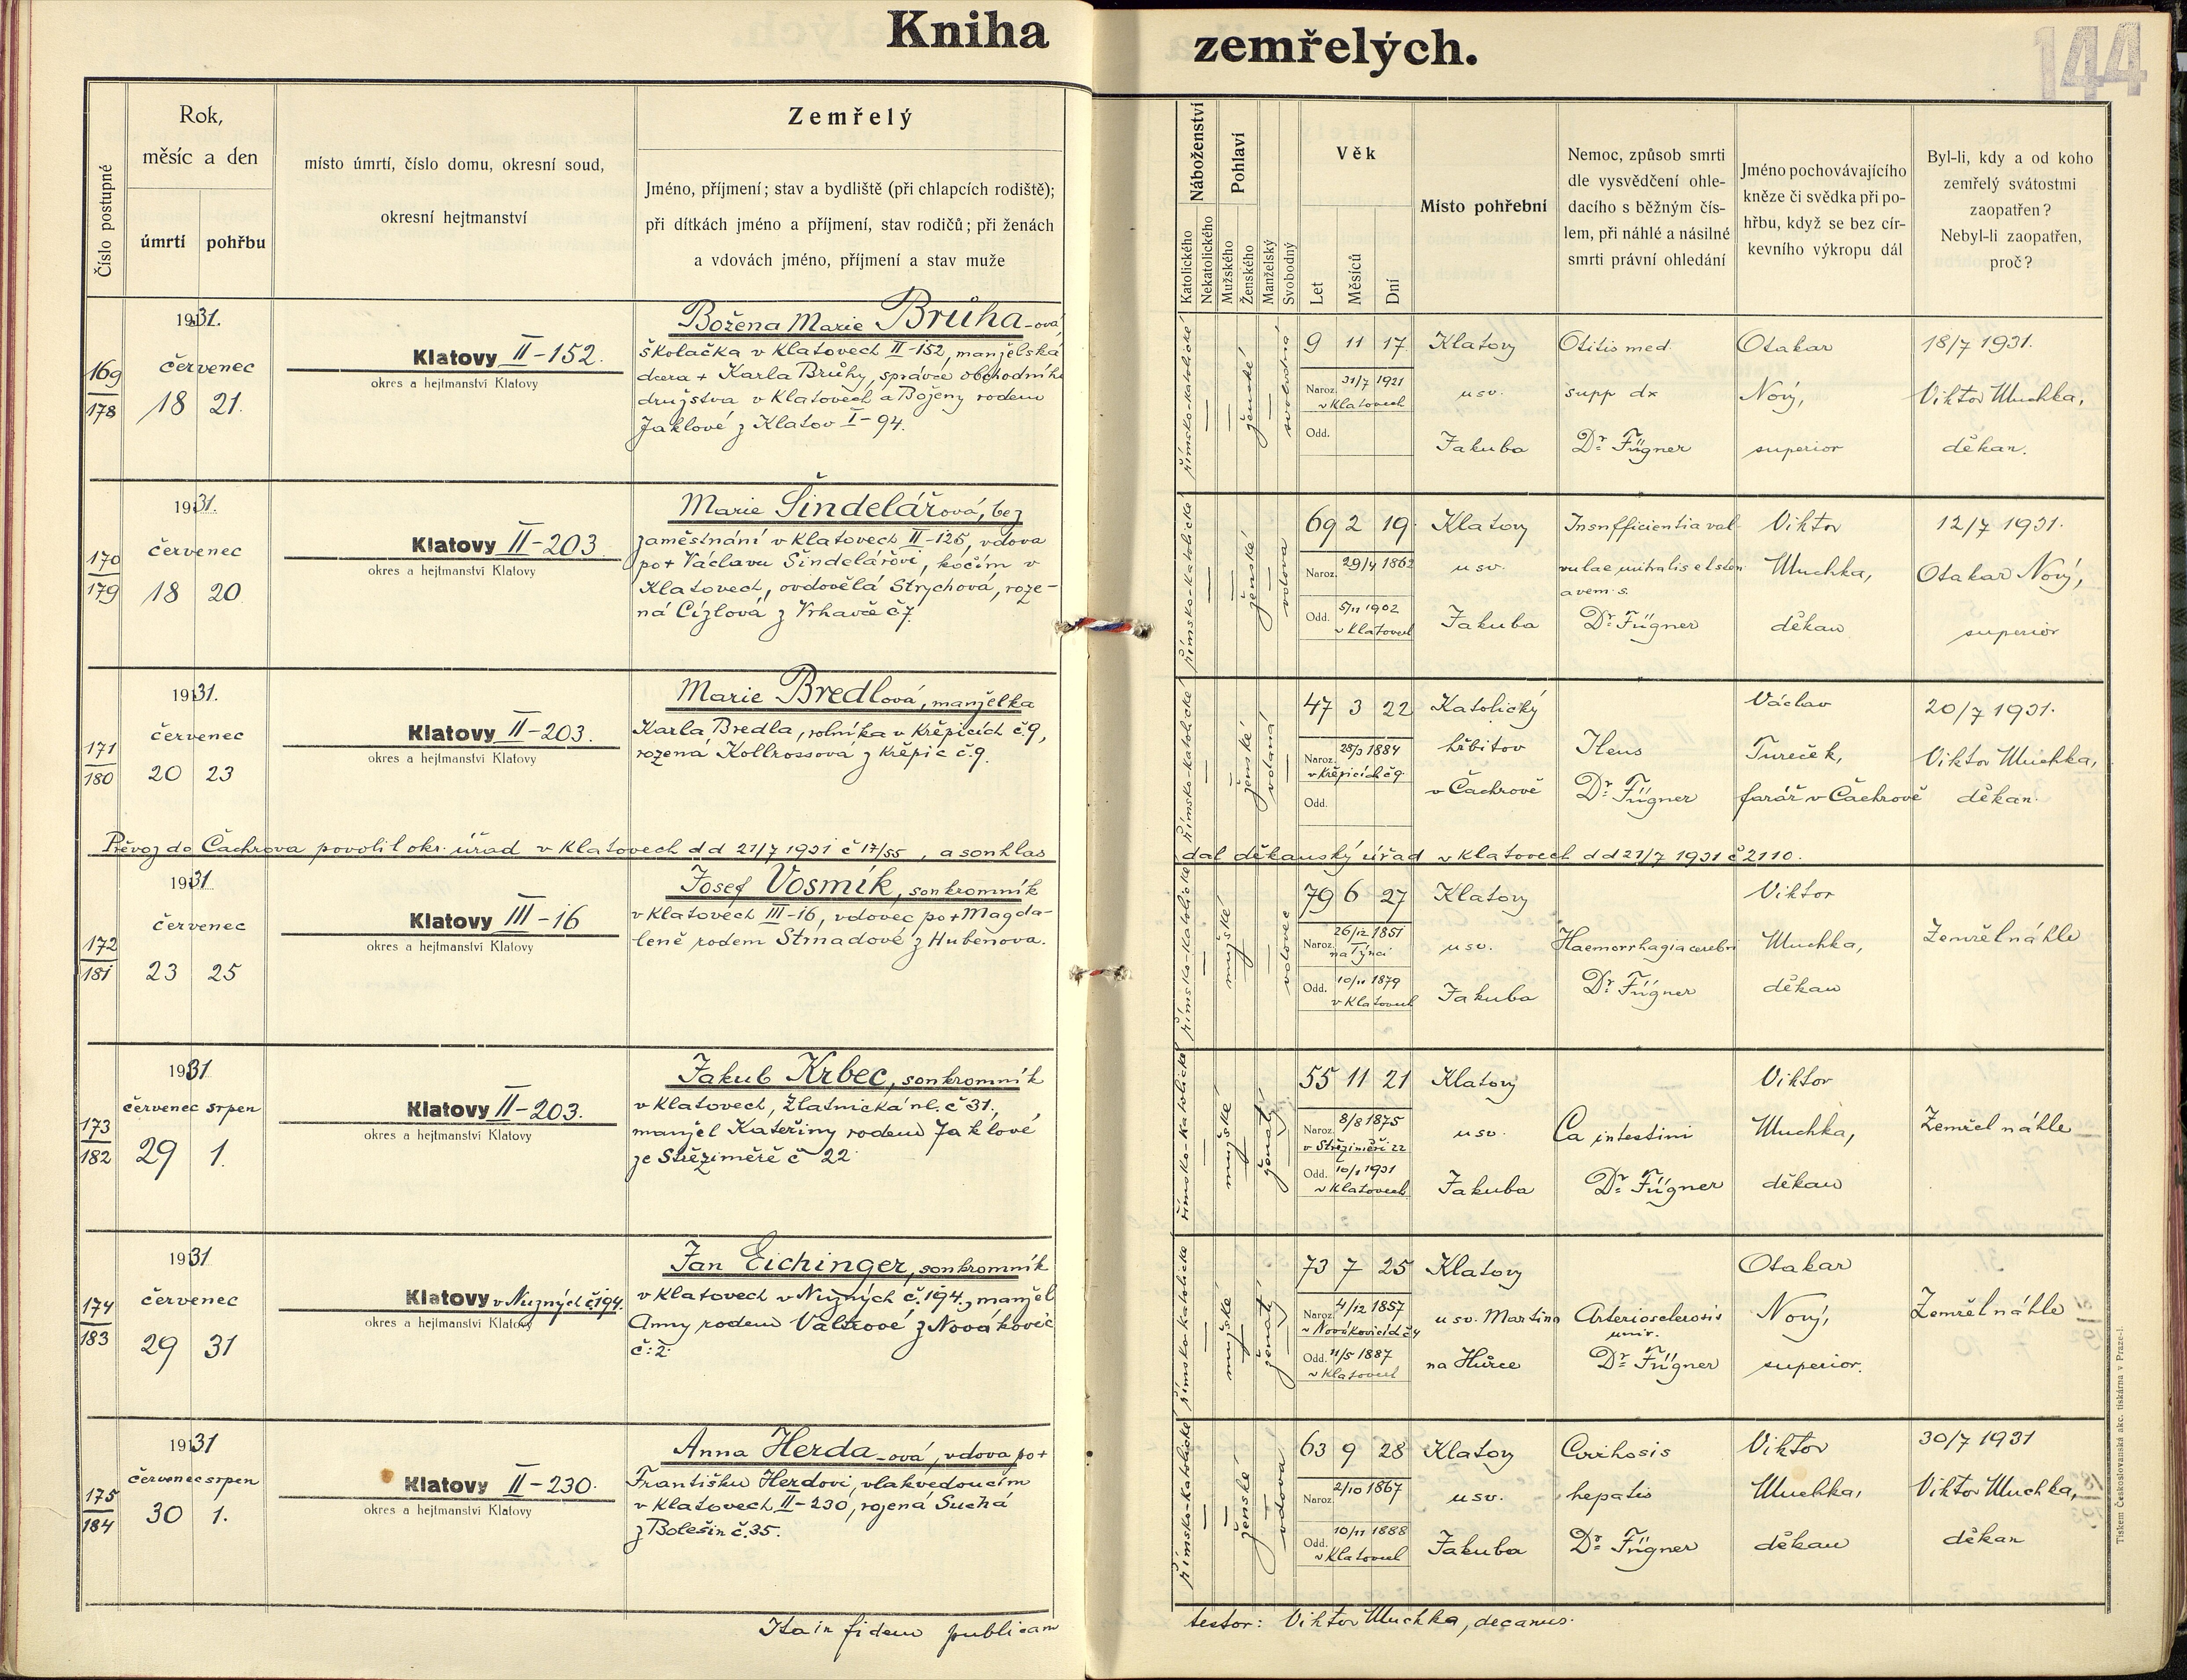 Kniha zemřelých.
144
Číslo postupné
Rok,
měsíc a den
úmrtí
pohřbu
místo úmrtí, číslo domu, okresní soud,
okresní hejtmanství
Zemřelý
Jméno, příjmení; stav a bydliště (při chlapcích rodiště);
při dítkách jméno a příjmení, stav rodičů; při ženách
a vdovách jméno, příjmení a stav muže
Náboženství
Katolického
Nekatolického
Pohlaví
Mužského
Ženského
Manželský
Svobodný
Věk
Let
Měsíců
Dní
Místo pohřební
Nemoc, způsob smrti
dle vysvědčení ohle-
dacího s běžným čís-
lem, při náhlé a násilné
smrti právní ohledání
Jméno pochovávajícího
kněze či svědka při po-
hřbu, když se bez cír-
kevního výkropu dál
Byl-li, kdy a od koho
zemřelý svátostmi
zaopatřen?
Nebyl-li zaopatřen,
proč?
169
178
1931.
červenec
18 21.
Klatovy II-152.
okres a hejtmanství Klatovy
Božena Marie Brůha-ová
školačka v Klatovech II-152, manželská
dcera + Karla Brůhy, správce obchodního
družstva v Klatovech a Boženy rodem
Jaklové z Klatov I-94.
římsko-katolické
ženské
svobodná
9 11 17.
Naroz. 31/7 1921
v Klatovech
Odd.
Klatovy
u sv.
Jakuba
Otitis med.
supp dx
Dr. Fügner
Otakar
Nový,
superior
18/7 1931.
Viktor Muchka,
děkan.
170
179
1931.
červenec
18 20
Klatovy II-203
okres a hejtmanství Klatovy
Marie Šindelářová, bez
zaměstnání v Klatovech II-125, vdova
po + Václavu Šindelářovi, kočím v
Klatovech, ovdovělá Strychová, roze-
ná Cízlová z Vrhavče č 7.
římsko-katolické
ženské
vdova
69 2 19.
Naroz. 29/4 1862
Odd. 5/11 1902
v Klatovech
Klatovy
u sv.
Jakuba
Insufficientia val-
vulae mitralis et sten
a vem. s.
Dr. Fügner
Viktor
Muchka,
děkan
12/7 1931.
Otakar Nový,
superior
171
180
1931.
červenec
20 23
Klatovy II-203.
okres a hejtmanství Klatovy
Marie Bredlová, manželka
Karla Bredla, rolníka v Křepicích č. 9,
rozená Kollrossová z Křepic č. 9.
římsko-katolické
ženské
vdaná
47 3 22
Naroz. 28/3 1884
v Křepicích č 9.
Odd.
Katolický
hřbitov
v Čachrově
Ileus
Dr. Fügner
Václav
Tureček,
farář v Čachrově
20/7 1931.
Viktor Muchka,
děkan.
Převoz do Čachrova povolil okr. úřad v Klatovech dd 21/7 1931 č 17/55, a souhlas
dal děkanský úřad v Klatovech dd 21/7 1931 č 2110.
172
181
1931
červenec
23 25
Klatovy III-16
okres a hejtmanství Klatovy
Josef Vosmík, soukromník
v Klatovech III-16, vdovec po + Magda-
leně rodem Strnadové z Hubenova.
římsko-katolické
mužské
vdovec
79 6 27
Naroz. 26/12 1851
na Týnci
Odd. 10/11 1879
v Klatovech
Klatovy
u sv.
Jakuba
Haemorrhagia cerebri
Dr. Fügner
Viktor
Muchka,
děkan
Zemřel náhle
173
182
1931
červenec srpen
29 1.
Klatovy II-203.
okres a hejtmanství Klatovy
Jakub Krbec, soukromník
v Klatovech, Zlatnická ul. č 31.,
manžel Kateřiny rodem Jaklové
ze Střeziměře č 22.
římsko-katolické
mužské
ženatý
55 11 21
Naroz. 8/8 1875
v Střeziměři 22
Odd. 10/1 1931
v Klatovech
Klatovy
u sv.
Jakuba
Ca intestini
Dr. Fügner
Viktor
Muchka,
děkan
Zemřel náhle
174
183
1931
červenec
29 31
Klatovy v Nuzných č. 194.
okres a hejtmanství Klatovy
Jan Eichinger, soukromník
v Klatovech v Nuzných č. 194., manžel
Anny rodem Valtrové z Novákovic
č: 2.
římsko-katolické
mužské
ženatý
73 7 25
Naroz. 4/12 1857
v Novákovicích č 4
Odd. 11/5 1887
v Klatovech
Klatovy
u sv. Martina
na Hůrce
Arteriosclerosis
univ.
Dr. Fügner
Otakar
Nový,
superior.
Zemřel náhle
175
184
1931
červenec srpen
30 1.
Klatovy II-230.
okres a hejtmanství Klatovy
Anna Herda-ová, vdova po +
Františku Herdovi, vlakvedoucím
v Klatovech II-230, rozená Suchá
z Bolešin č. 35.
římsko-katolické
ženské
vdova
63 9 28
Naroz. 2/10 1867
Odd. 10/11 1888
v Klatovech
Klatovy
u sv.
Jakuba
Cirrhosis
hepatis
Dr. Fügner
Viktor
Muchka,
děkan
30/7 1931
Viktor Muchka,
děkan
Ita in fidem publicam
testor: Viktor Muchka, decanus.
Tiskem Československá akc. tiskárna v Praze-I.